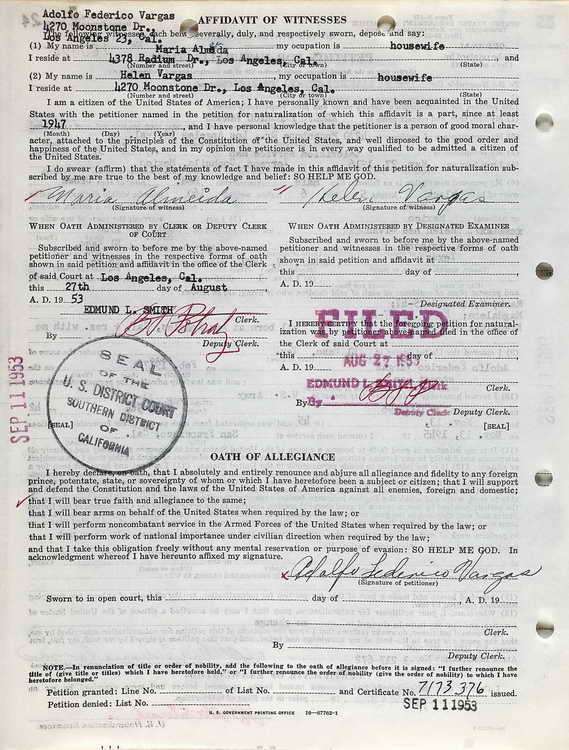 Adolfo Federico Vargas
4270 Moonstone Dr.,
Los Angeles 23, Cal.
AFFIDAVIT OF WITNESSES
The following witnesses, each being severally, duly, and respectively sworn, depose and say:
(1) My name is Maria Almeida, my occupation is housewife
I reside at 4378 Radium Dr., Los Angeles, Cal., and
(Number and street) (City or town) (State)
(2) My name is Helen Vargas, my occupation is housewife
I reside at 4270 Moonstone Dr., Los Angeles, Cal.
(Number and street) (City or town) (State)
I am a citizen of the United States of America; I have personally known and have been acquainted in the United
States with the petitioner named in the petition for naturalization of which this affidavit is a part, since at least
1947, and I have personal knowledge that the petitioner is a person of good moral char-
(Month) (Day) (Year)
acter, attached to the principles of the Constitution of the United States, and well disposed to the good order and
happiness of the United States, and in my opinion the petitioner is in every way qualified to be admitted a citizen of
the United States.
I do swear (affirm) that the statements of fact I have made in this affidavit of this petition for naturalization sub-
scribed by me are true to the best of my knowledge and belief: SO HELP ME GOD.
Maria Almeida Helen Vargas
(Signature of witness) (Signature of witness)
WHEN OATH ADMINISTERED BY CLERK OR DEPUTY CLERK
OF COURT
Subscribed and sworn to before me by the above-named
petitioner and witnesses in the respective forms of oath
shown in said petition and affidavit in the office of the Clerk
of said Court at Los Angeles, Cal.
this 27th day of August
A. D. 19 53
EDMUND L. SMITH
Clerk.
By
Deputy Clerk.
SEAL
OF THE
U. S. DISTRICT COURT
SOUTHERN DISTRICT
OF
CALIFORNIA
[SEAL]
SEP 11 1953
WHEN OATH ADMINISTERED BY DESIGNATED EXAMINER
Subscribed and sworn to before me by the above-named
petitioner and witnesses in the respective forms of oath
shown in said petition and affidavit at
this day of
A. D. 19
Designated Examiner.
I HEREBY CERTIFY that the foregoing petition for natural-
ization was by petitioner above named filed in the office of
the Clerk of said Court at
this day of
A. D. 19
FILED
AUG 27 1953
EDMUND L. SMITH, Clerk
Clerk.
By
By
Deputy Clerk
Deputy Clerk.
[SEAL]
OATH OF ALLEGIANCE
I hereby declare, on oath, that I absolutely and entirely renounce and abjure all allegiance and fidelity to any foreign
prince, potentate, state, or sovereignty of whom or which I have heretofore been a subject or citizen; that I will support
and defend the Constitution and the laws of the United States of America against all enemies, foreign and domestic;
that I will bear true faith and allegiance to the same;
that I will bear arms on behalf of the United States when required by the law; or
that I will perform noncombatant service in the Armed Forces of the United States when required by the law; or
that I will perform work of national importance under civilian direction when required by the law;
and that I take this obligation freely without any mental reservation or purpose of evasion: SO HELP ME GOD. In
acknowledgment whereof I have hereunto affixed my signature.
Adolfo Federico Vargas
(Signature of petitioner)
Sworn to in open court, this day of , A. D. 19
Clerk.
By
Deputy Clerk.
NOTE.—In renunciation of title or order of nobility, add the following to the oath of allegiance before it is signed: "I further renounce the
title of (give title or titles) which I have heretofore held," or "I further renounce the order of nobility (give the order of nobility) to which I have
heretofore belonged."
Petition granted: Line No. of List No. and Certificate No. 7173376 issued.
Petition denied: List No. SEP 11 1953
U. S. GOVERNMENT PRINTING OFFICE 16—67762-1